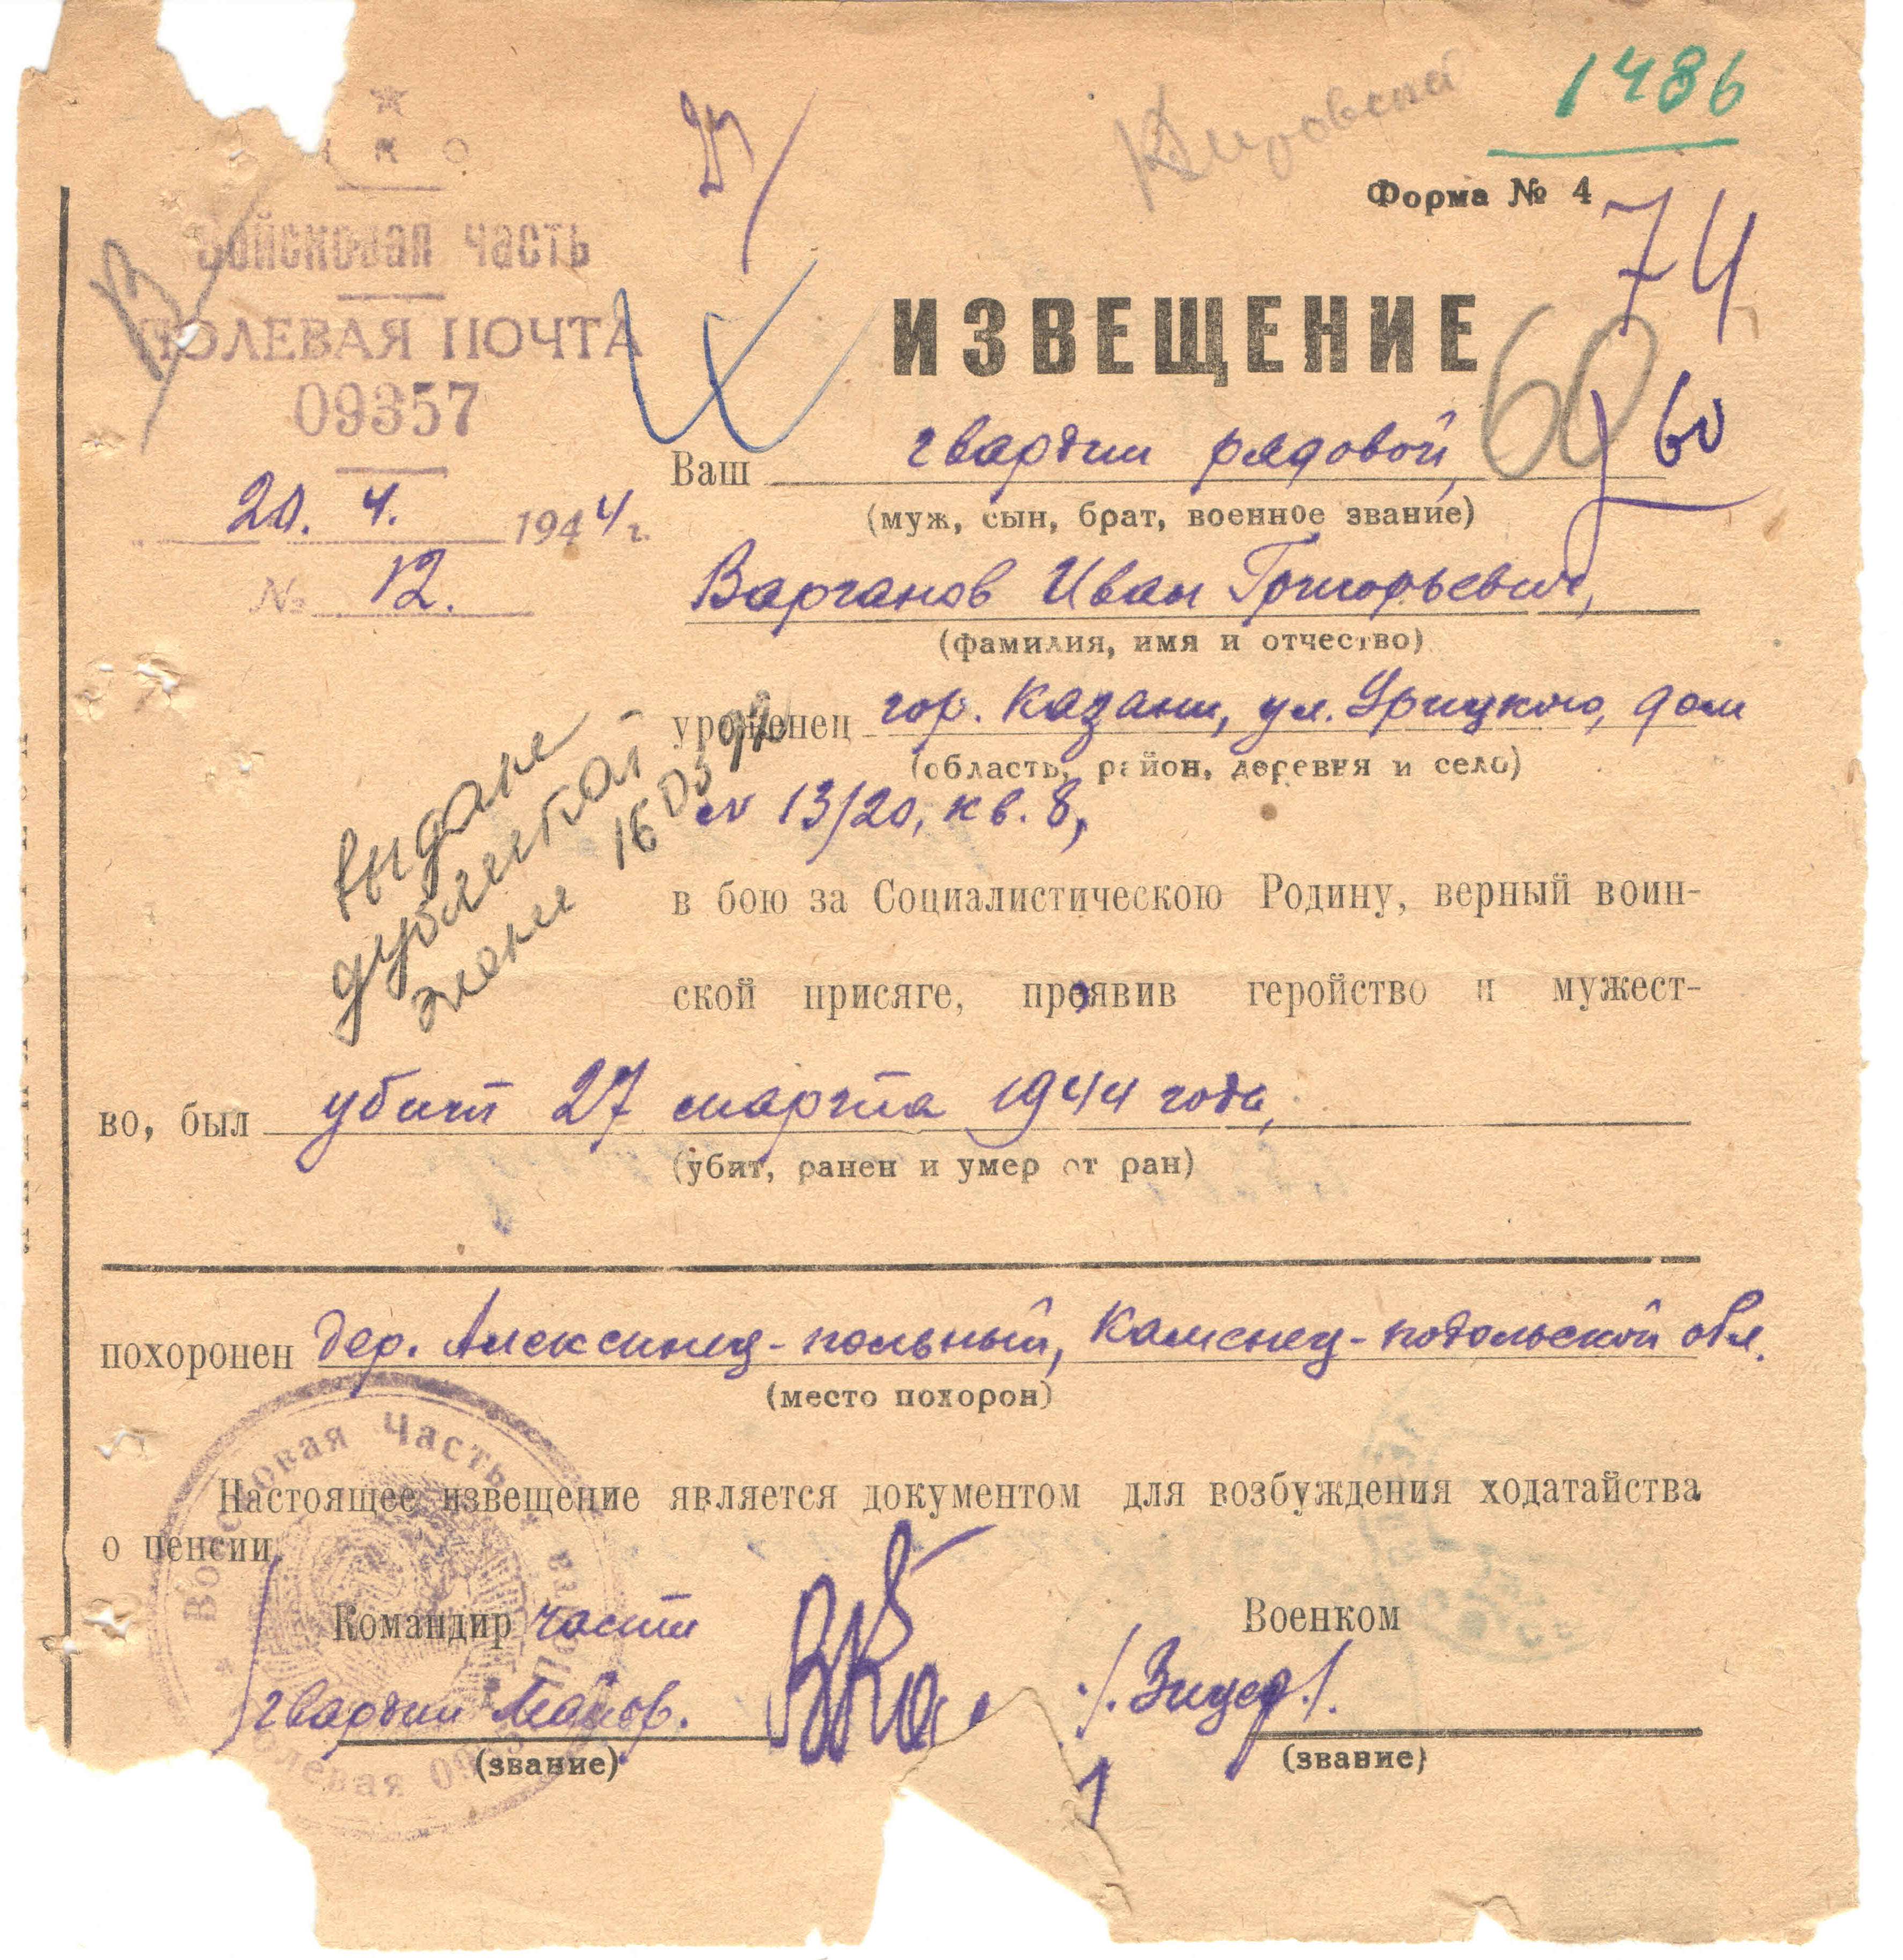 1486
Кировский
Форма № 4
74
НКО
Войсковая часть
ПОЛЕВАЯ ПОЧТА
09357
20. 4. 1944 г.
№ 12.
ИЗВЕЩЕНИЕ
60
60
Ваш гвардии рядовой,
(муж, сын, брат, военное звание)
Варганов Иван Григорьевич,
(фамилия, имя и отчество)
уроженец гор. Казани, ул. Урицкого, дом
(область, район, деревня и село)
№ 13/20, кв. 8,
выдане
дубликат
жене 16 05
в бою за Социалистическою Родину, верный воин-
ской присяге, проявив геройство и мужест-
во, был убит 27 марта 1944 года,
(убит, ранен и умер от ран)
похоронен дер. Алексинец-польный, Каменец-подольской обл.
(место похорон)
Настоящее извещение является документом для возбуждения ходатайства
о пенсии
Командир части
Военком
гвардии Майор.
(звание)
(звание)
Войсковая Часть
Полевая